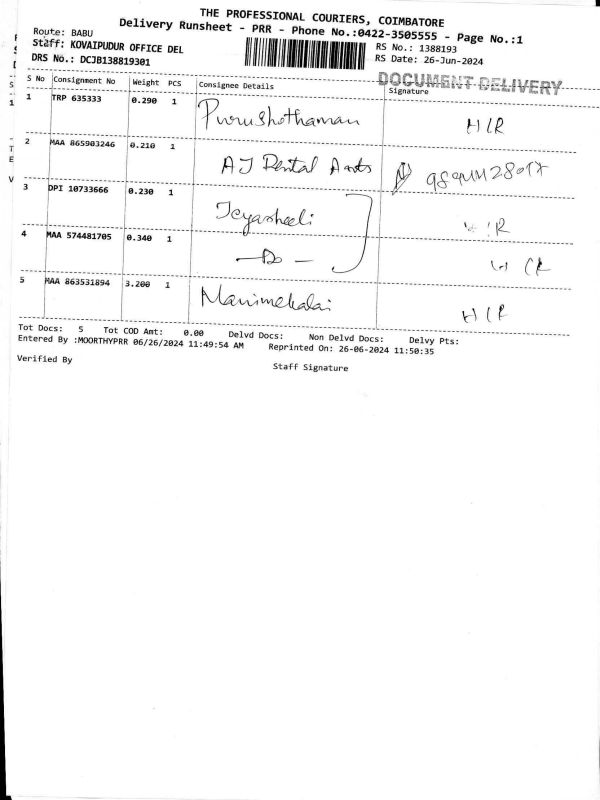 THE PROFESSIONAL COURIERS, COIMBATORE
Delivery Runsheet - PRR - Phone No.:0422-3505555 - Page No.:1
Route: BABU
Staff: KOVAIPUDUR OFFICE DEL
RS No.: 1388193
DRS No.: DCJB138819301
RS Date: 26-Jun-2024
DOCUMENT DELIVERY
S No Consignment No Weight PCS Consignee Details Signature
1 TRP 635333 0.290 1 Purushothaman HLR
2 MAA 865903246 0.210 1 AJ Dental Arts
3 DPI 10733666 0.230 1 Jeyasheeli
4 MAA 574481705 0.340 1 -Do-
5 MAA 863531894 3.200 1 Manimekalai HLR
Tot Docs: 5 Tot COD Amt: 0.00 Delvd Docs: Non Delvd Docs: Delvy Pts:
Entered By :MOORTHYPRR 06/26/2024 11:49:54 AM Reprinted On: 26-06-2024 11:50:35
Verified By
Staff Signature